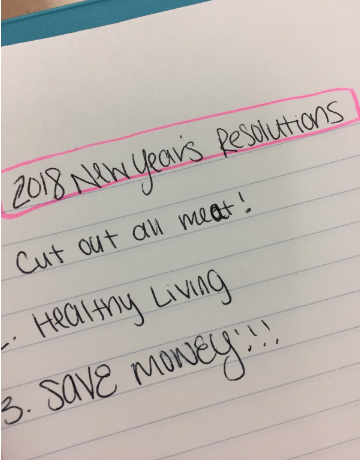 2018 New Year's Resolutions
Cut out all meat!
. Healthy Living
3. SAVE MONEY!!!